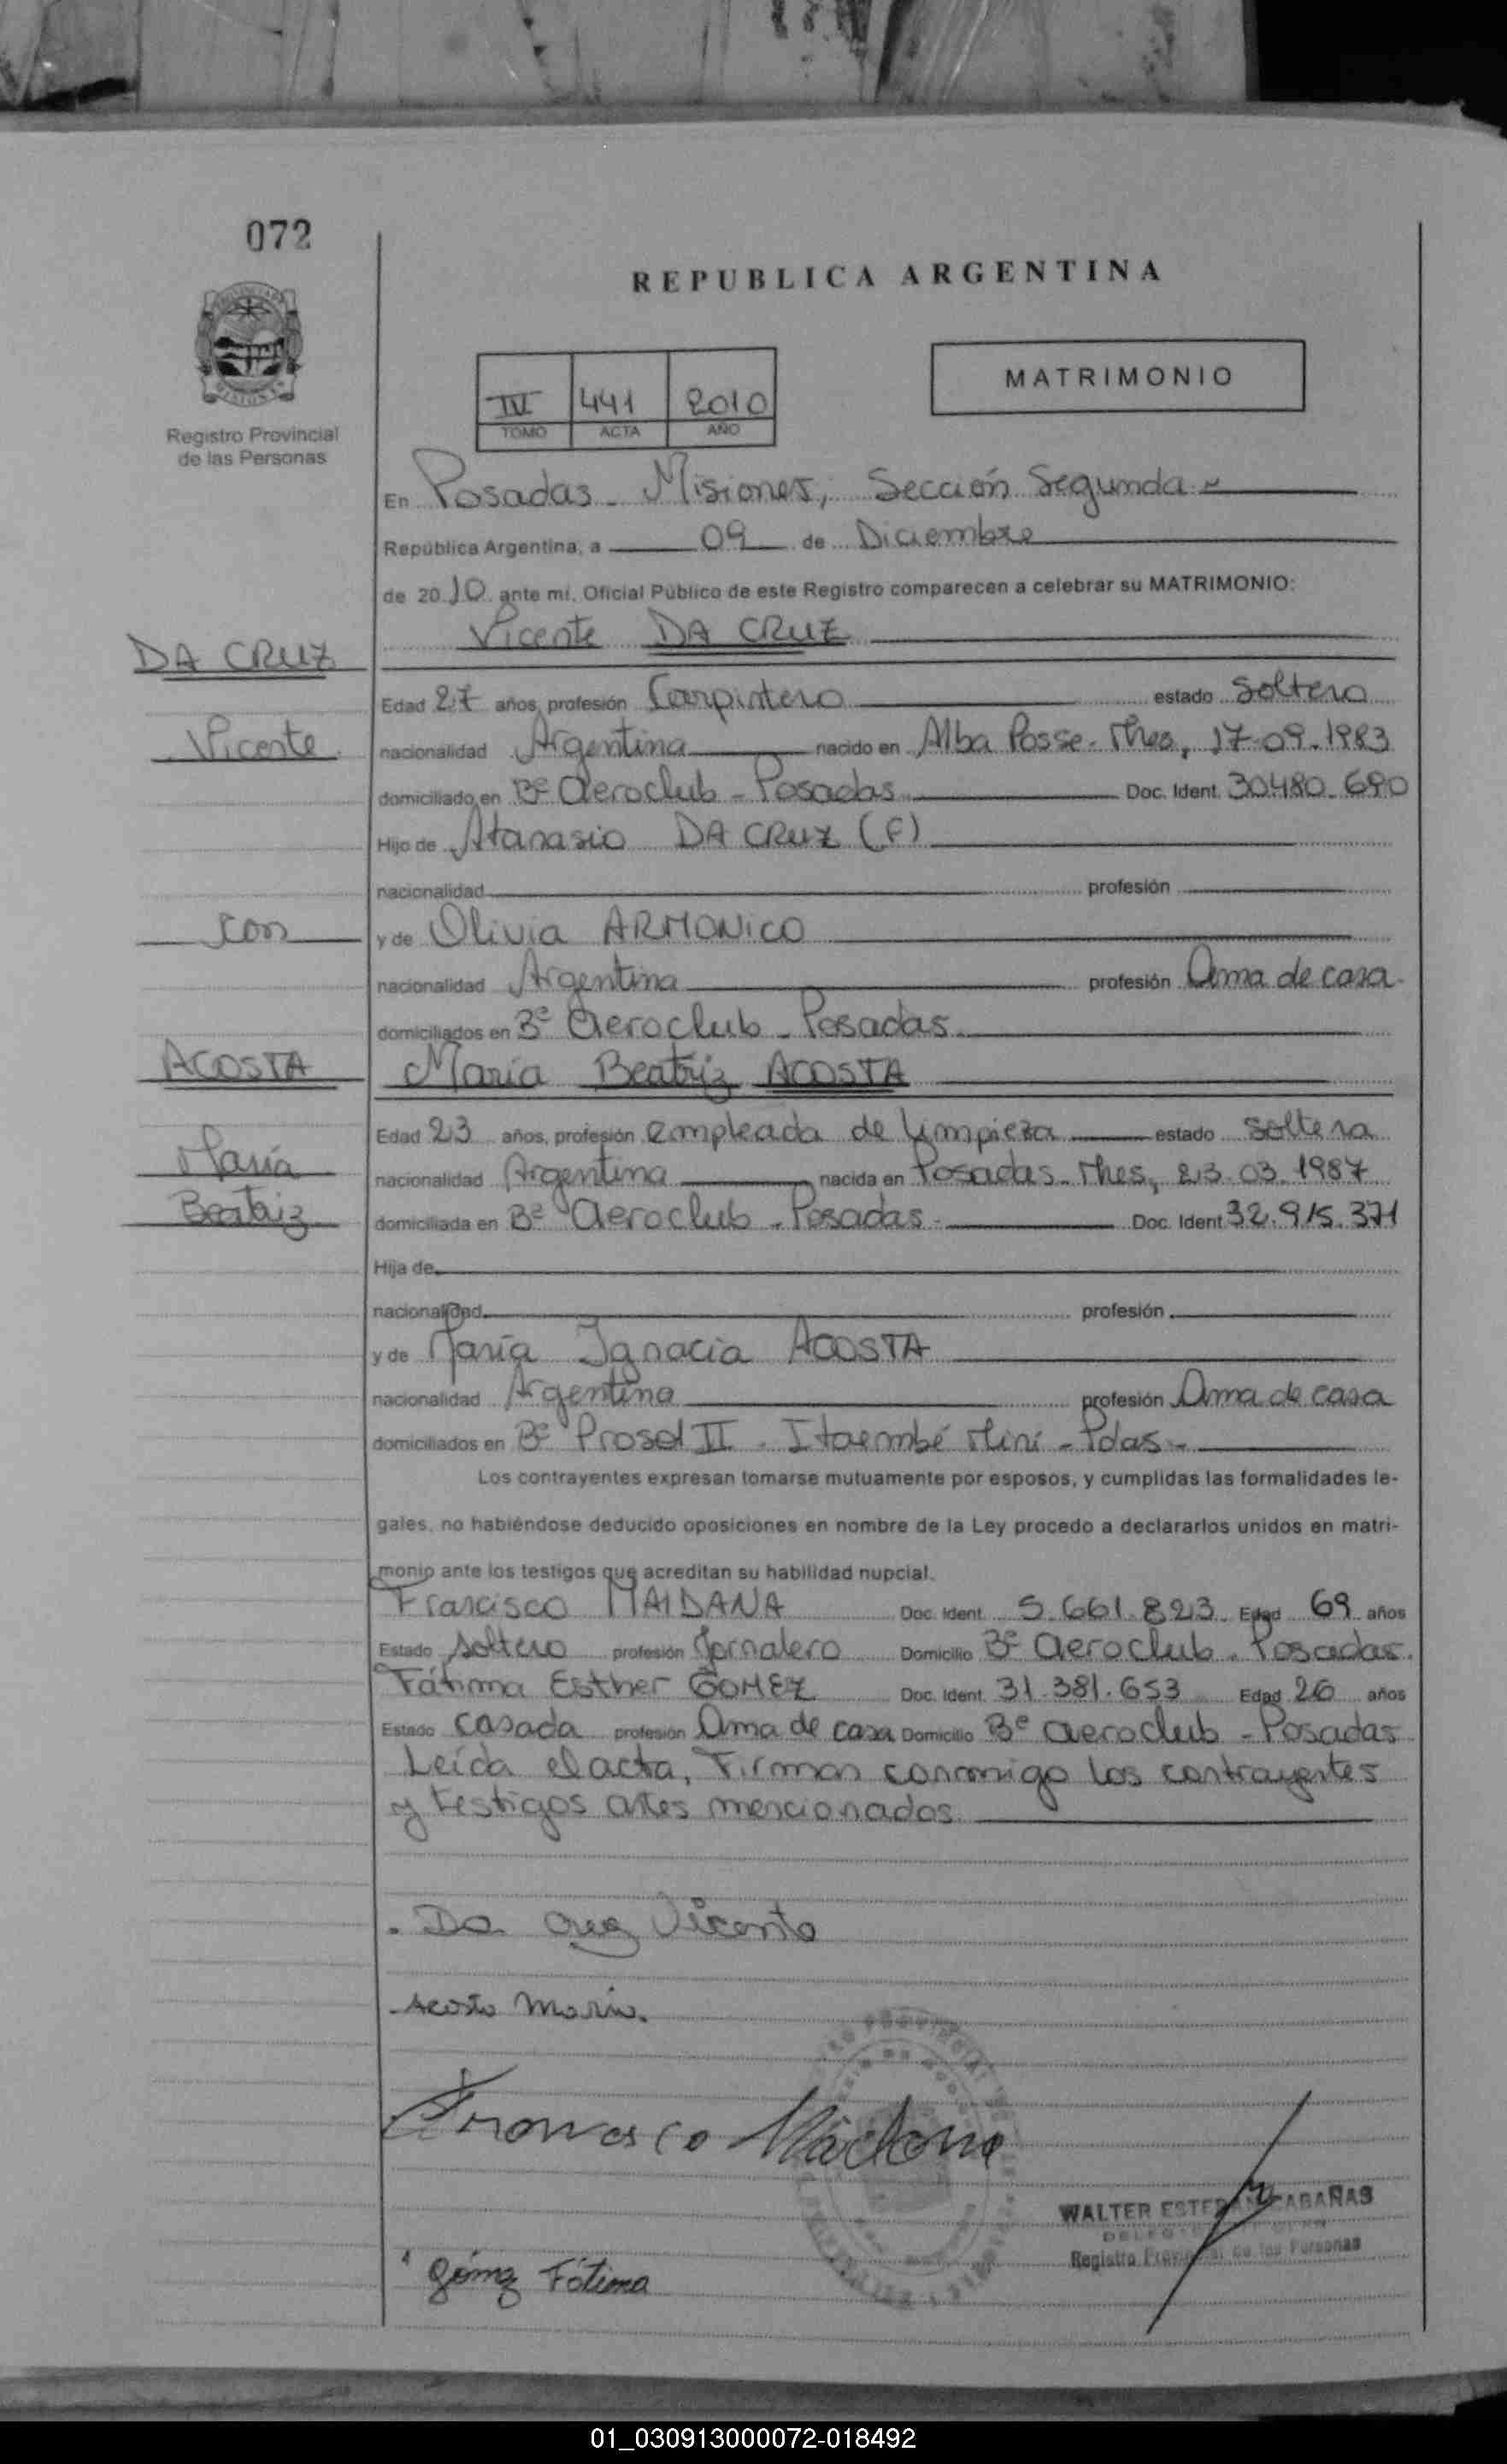 072
REPUBLICA ARGENTINA
MATRIMONIO
IV 441 2010
TOMO ACTA AÑO
Registro Provincial
de las Personas
En Posadas - Misiones, Sección Segunda
República Argentina, a 09 de Diciembre
de 2010 ante mi, Oficial Público de este Registro comparecen a celebrar su MATRIMONIO:
Vicente DA CRUZ
DA CRUZ
Edad 27 años, profesión Carpintero estado Soltero
Vicente
nacionalidad Argentina nacido en Alba Posse - Mnes, 17-09-1983
domiciliado en Bº Aeroclub - Posadas Doc. Ident. 30480.690
Hijo de Atanasio DA CRUZ (F)
nacionalidad profesión
con
y de Olivia ARMONICO
nacionalidad Argentina profesión Ama de casa
domiciliados en Bº Aeroclub - Posadas
ACOSTA
María Beatriz ACOSTA
Edad 23 años, profesión empleada de limpieza estado soltera
María
nacionalidad Argentina nacida en Posadas - Mnes, 23.03.1987
Beatriz
domiciliada en Bº Aeroclub - Posadas - Doc. Ident 32.915.371
Hija de
nacionalidad profesión
y de María Ignacia ACOSTA
nacionalidad Argentina profesión Ama de casa
domiciliados en Bº Prosol II - Itaembé Miní - Pdas -
Los contrayentes expresan tomarse mutuamente por esposos, y cumplidas las formalidades le-
gales, no habiéndose deducido oposiciones en nombre de la Ley procedo a declararlos unidos en matri-
monio ante los testigos que acreditan su habilidad nupcial.
Francisco MAIDANA Doc. Ident. 5.661.823 Edad 69 años
Estado soltero profesión Jornalero Domicilio Bº Aeroclub - Posadas.
Fátima Esther GOMEZ Doc. Ident. 31.381.653 Edad 26 años
Estado casada profesión Ama de casa Domicilio Bº aeroclub - Posadas
Leída el acta, Firman conmigo los contrayentes
y testigos antes mencionados
Da Cruz Vicente
Acosta Maria.
Francisco Maidana
WALTER ESTEBAN CABAÑAS
Registro Provincial de las Personas
Gómez Fátima
01_030913000072-018492